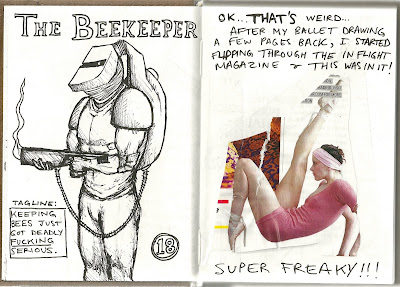 THE BEEKEEPER
TAGLINE:
KEEPING
BEES JUST
GOT DEADLY
FUCKING
SERIOUS.
18
OK... THAT'S WEIRD...
AFTER MY BALLET DRAWING
A FEW PAGES BACK, I STARTED
FLIPPING THROUGH THE IN FLIGHT
MAGAZINE & THIS WAS IN IT!
SUPER FREAKY!!!